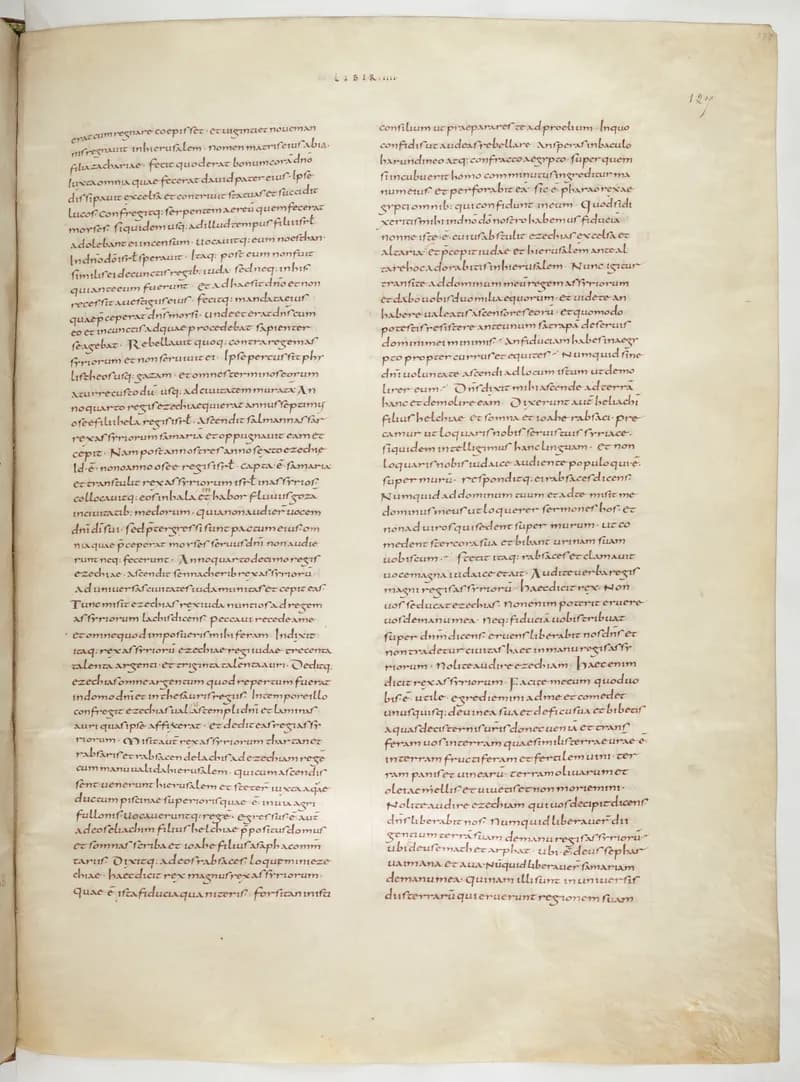 LIBER·IIII·
127
erat cum regnare coepisset· et uiginti et nouem an
nis regnauit in hierusalem· nomen matris eius abia·
filia zachariae· fecit quod erat bonum corā dn̄o
iuxta omnia quae fecerat dauid pater eius· Ipse
dissipauit excelsa et contriuit statuas et succidit
lucos· confregitq; serpentem aereū quem fecerat
morses· siquidem usq; ad illud tempus filii isrł
adolebant ei incensum· uocauitq; eum noesthan·
In dn̄o dō isrł sperauit· Itaq; post eum non fuit
similis ei de cunctis regib; iuda· sed neq; in his
qui ante eum fuerunt· et adhaesit dn̄o et non
recessit a uestigiis eius· fecitq; mandata eius
quae p̄ceperat dn̄s morsi· unde et erat dn̄s cum
eo et in cunctis ad quae procedebat sapienter
se agebat· Rebellauit quoq; contra regem as
syriorum et non seruiuit ei· Ipse percussit phy
listheos usq; gazam· et omnes terminos eorum
a turre custodū usq; ad ciuitatem muratā· An
no quarto regis ezechiae qui erat annus septimus
osee filii hela regis isrł· ascendit salmannassar
rex assyriorum samariā et oppugnauit eam et
cepit· Nam post annos tres anno sexto ezechie
Id·ē· nono anno osee regis isrł· capta·ē· samaria
et transtulit rex assyriorum isrł in assyrios·
collocauitq; eos in hala et habor fluuiis goza
in ciuitatib; medorum· quia non audier uocem
dn̄i dī sui· sed p̄tergressi sunt pactum eius om
nia quae p̄ceperat morses seruus dn̄i non audie
runt neq; fecerunt· Anno quarto decimo regis
ezechiae· ascendit sennacherib rex assyriorū
ad uniuersas ciuitates iuda munitas et cepit eas·
Tunc misit ezechias rex iuda nuntios ad regem
assyriorum lachis dicens· peccaui recede a me·
et omne quod imposueris mihi feram· Indixit
itaq; rex assyriorū ezechiae regi iudae trecenta
talenta argenti et triginta talenta auri· Deditq;
ezechias omne argentum quod repertum fuerat
in domo dn̄i et in thesauris regiis· In tempore illo
confregit ezechias ualuas templi dn̄i et laminas
auri quas ipse affixerat· et dedit eas regi assy
riorum· Misit aut̄ rex assyriorum thartan et
rabsaris et rabsacen de lachis ad ezechiam rege
cum manu ualida hierusalem· qui cum ascendis
sent uenerunt hierusalem et steter̄ iuxta aquae
ductum piscinae superioris quae·ē· in uia agri
fullonis uocaueruntq; rege· egressus·ē·aut̄
ad eos eliachim filius helchiae p̄positus domus
et somnas scriba et ioahe filius asaph a comm
tariis· Dixitq; ad eos rabsaces· loquimini eze
chiae· haec dicit rex magnus rex assyriorum·
Quae·ē· ista fiducia qua niteris· forsitan inisti
consilium ut praepares te ad proelium· In quo
confidis ut audeas rebellare· an speras in baculo
harundineo atq; confracto aegypto· super quem
si incubuerit homo comminutus ingreditur ma
num eius et perforabit eā· sic·ē· pharao rex ae
gypti omnib; qui confidunt in eum· Quod si di
xeritis mihi in dn̄o dō nostro habemus fiduciā
nonne iste·ē· cuius abstulit ezechias excelsa et
altaria et p̄cepit iudae et hierusalem ante al
tare hoc adorabitis in hierusalem· Nunc igitur
transite ad dominum meū regem assyriorum
et dabo uobis duo milia equorum· et uidete an
habere ualeatis ascensores eorū· et quomodo
potestis resistere ante unum satrapā de seruis
domini mei minimis· an fiduciam habes in aegy
pto propter currus et equites· Numquid sine
dn̄i uoluntate ascendi ad locum istum ut demo
lirer eum· Dn̄s dixit mihi ascende ad terrā
hanc et demolire eam· Dixerunt aut̄ heliachī
filius helchiae· et somna et ioahe rabsaci· pre
camur ut loquaris nobis seruis tuis syriace·
siquidem intelligimus hanc linguam· et non
loquaris nobis iudaice audiente populo qui·ē·
super murū· responditq; ei rabsaces dicens·
Numquid ad dominum tuum et ad te misit me
dominus meus ut loquerer sermones hos· et
non ad uiros qui sedent super murum· ut co
medent stercora sua et bibant urinam suam
uobiscum· stetit itaq; rabsaces et clamauit
uoce magna iudaice et ait· Audite uerba regis
magni regis assyriorū· haec dicit rex· Non
uos seducat ezechias· Non enim poterit eruere
uos de manu mea· Neq; fiduciā uobis tribuat
super dn̄m dicens· eruens liberabit nos dn̄s et
non tradetur ciuitas haec in manu regis assy
riorum· Nolite audire ezechiam· haec enim
dicit rex assyriorum· Facite mecum quod uo
bis·ē· utile· egredimini ad me et comedet
unusquisq; de uinea sua et de ficu sua et bibetis
aquas de cisternis uris donec ueniā et trans
feram uos in terram quae similis terrae urae·ē·
in terram fructiferam et fertilem uini· ter
ram panis et uinearū· terram oliuarum et
olei ac mellis et uiuetis et non moriemini·
Nolite audire ezechiam qui uos decipit dicens
dn̄s liberabit nos· Numquid liberauer̄ dii
gentium terrā suam de manu regis assyriorū·
ubi deus emath et arphat· ubi·ē· deus sephar
uaim ana et aua· Nūquid liberauer̄ samariam
de manu mea· Quinam illi sunt in uniuersis
diis terrarū qui eruerunt regionem suam